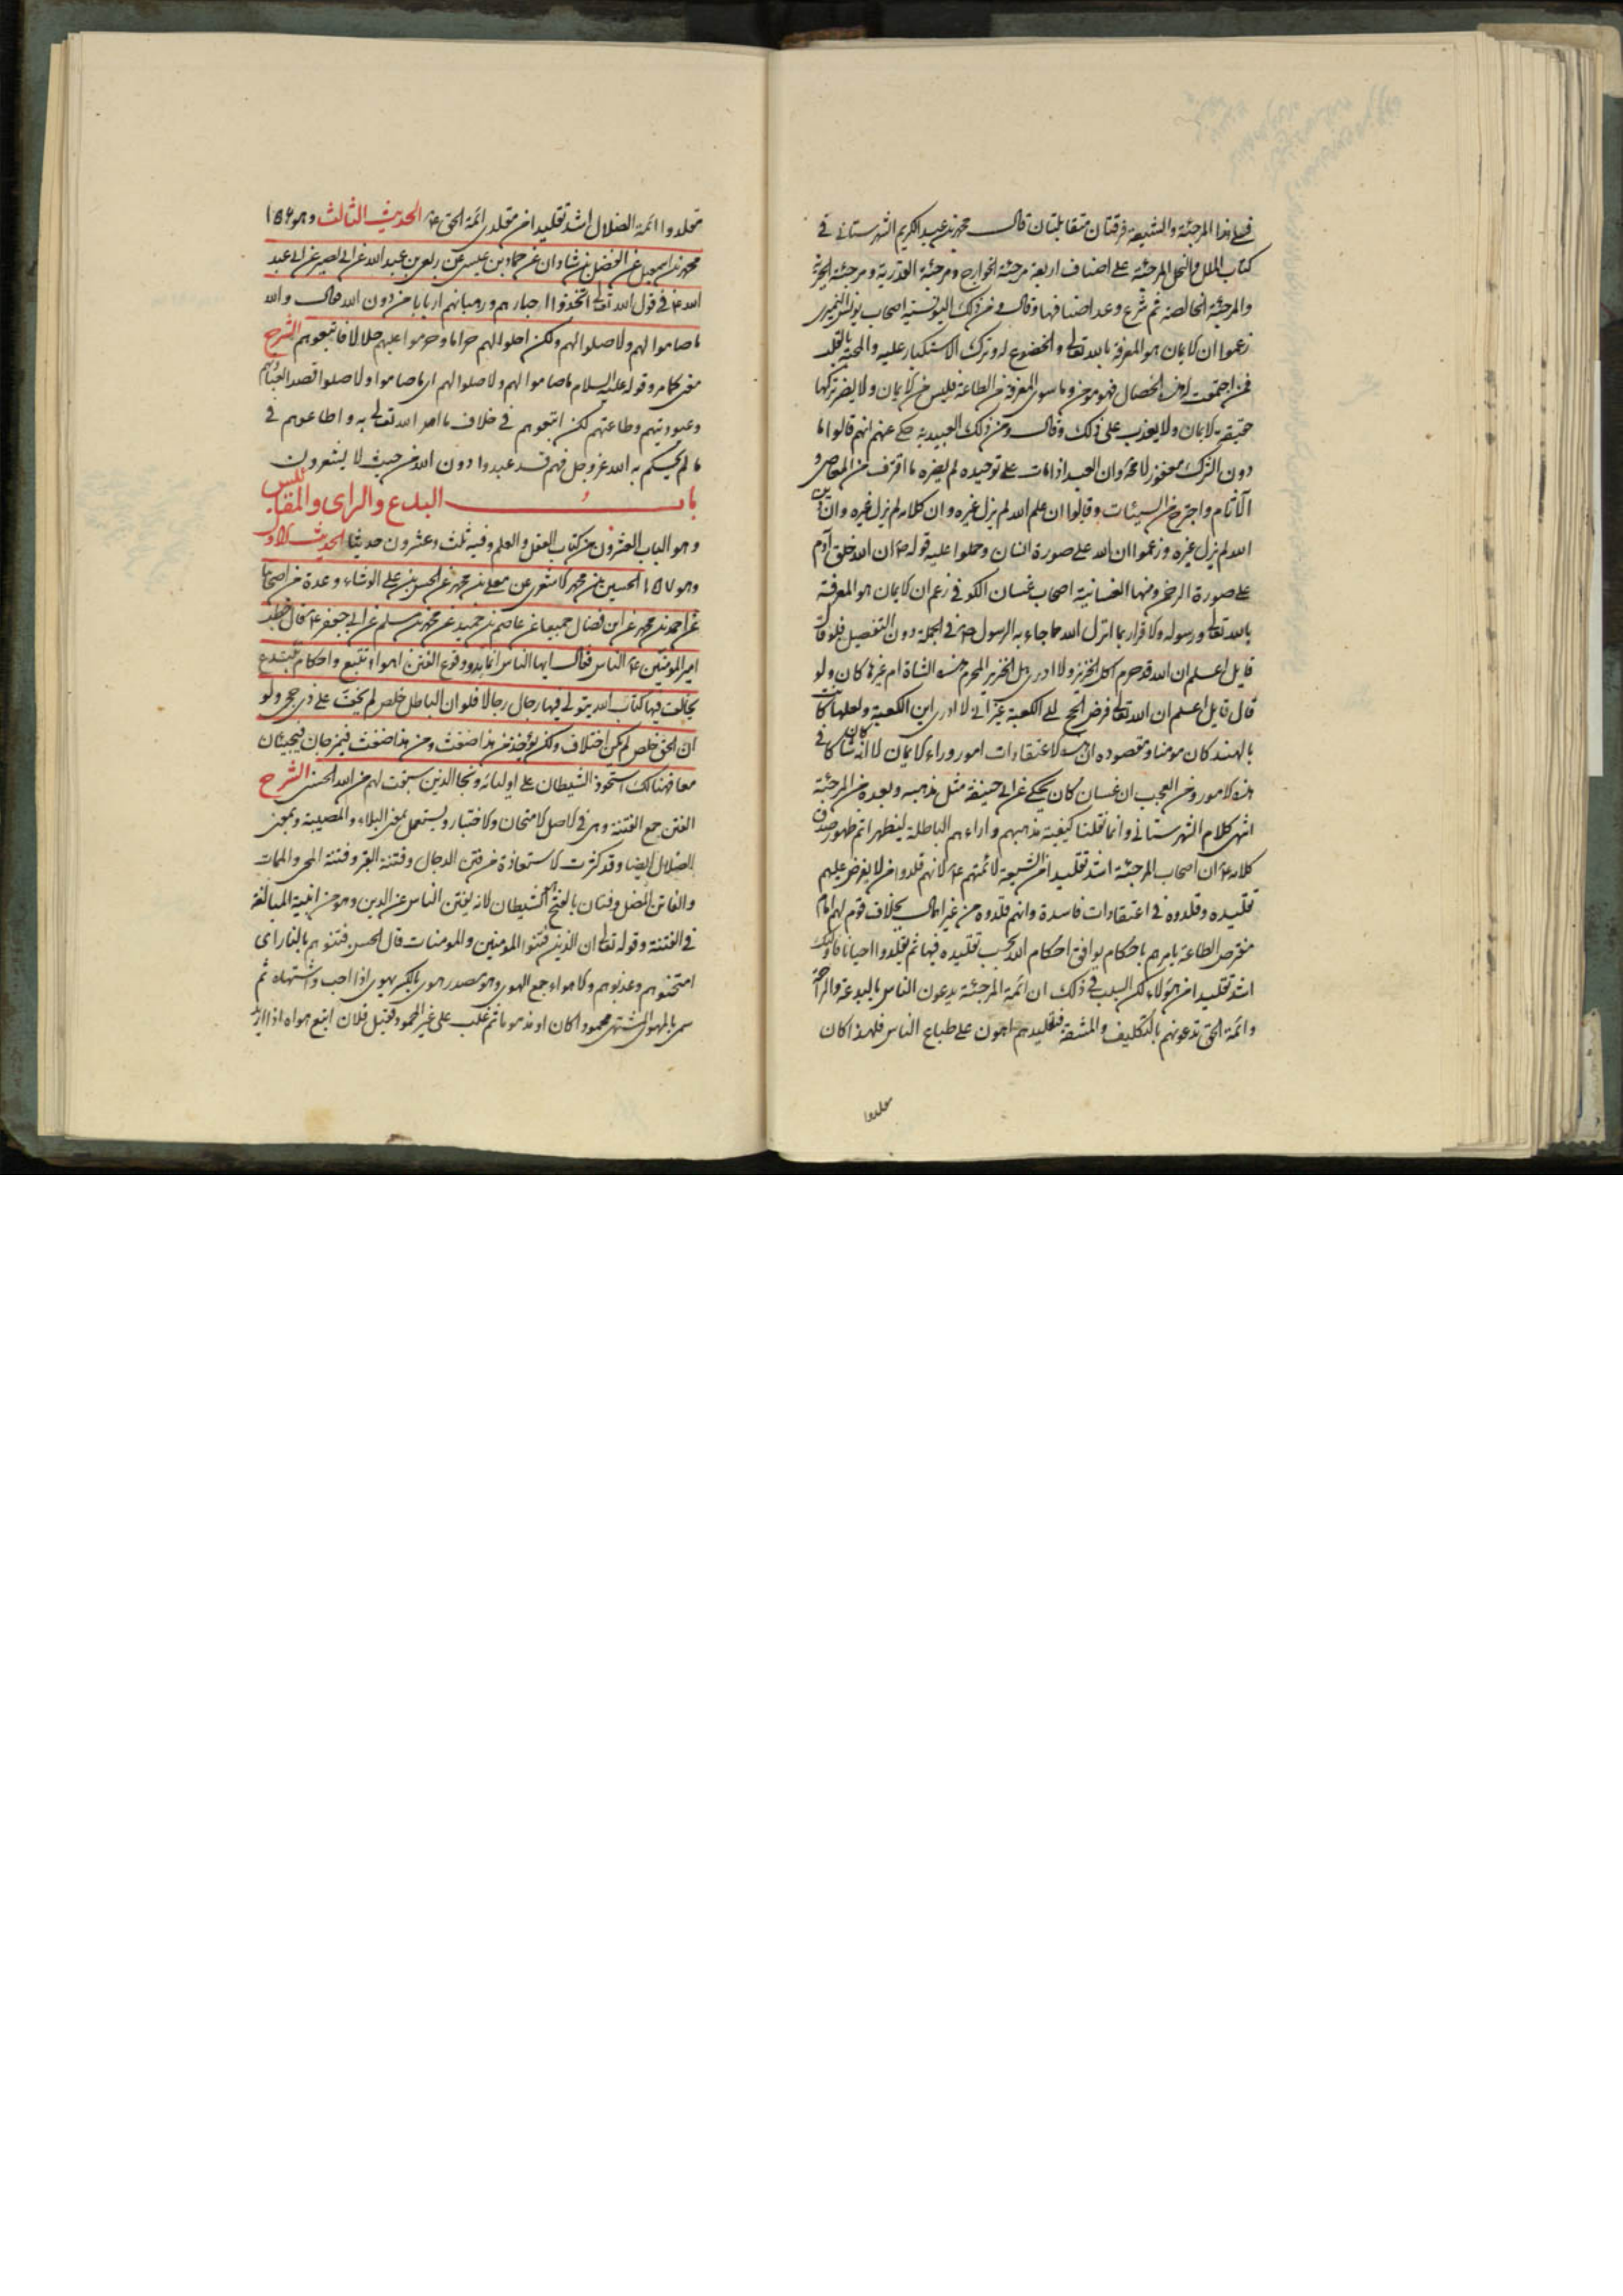 فعلى هذا المرجئة والشيعة فرقتان متقابلتان قال محمد بن عبد الكريم الشهرستاني في
كتاب الملل والنحل المرجئة على اصناف اربعة مرجئة الخوارج ومرجئة القدرية ومرجئة الجبرية
والمرجئة الخالصة ثم شرع وعد اصنافها وقال ومن ذلك اليونسية اصحاب يونس النميري
زعموا ان الايمان هو المعرفة بالله تعالى والخضوع له وترك الاستكبار عليه والمحبة بالقلب
فمن اجتمعت له هذه الخصال فهو مومن وما سوى المعرفة من الطاعة فليس من الايمان ولا يضر تركها
حقيقة الايمان ولا يعذب على ذلك وقال ومن ذلك العبيدية حكى عنهم انهم قالوا ما
دون الشرك مغفور لا محة وان العبد اذا مات على توحيده لم يضره ما اقترف من المعاصي و
الآثام واجترح من السيئات وقالوا ان علم الله لم يزل غيره وان كلامه لم يزل غيره وان دين
الله لم يزل غيره وزعموا ان الله على صورة انسان وحملوا عليه قوله ص ان الله خلق آدم
على صورة الرحمن ومنها الغسانية اصحاب غسان الكوفي زعم ان الايمان هو المعرفة
بالله تعالى ورسوله والاقرار بما انزل الله مما جاء به الرسول ص في الجملة دون التفصيل فلو قال
قايل اعلم ان الله قد حرم اكل الخنزير ولا ادري هل الخنزير المحرم هذه الشاة ام غيرها كان ولو
قال قايل اعلم ان الله تعالى فرض الحج الى الكعبة غير اني لا ادري اين الكعبة ولعلها كانت
بالهند كان مومنا ومقصوده ان هذه الاعتقادات امور وراء الايمان لا انه كان شاكا في
هذه الامور ومن العجب ان غسان كان يحكي عن ابي حنيفة مثل مذهبه ويعده من المرجئة
انتهى كلام الشهرستاني وانما نقلنا كيفية مذهبهم واراءهم الباطلة ليظهر اتم ظهور صدق
كلامه ع ان اصحاب المرجئة اشد تقليدا من الشيعة لائمتهم ع لانهم قلدوا من لا يفرض عليهم
تقليده وقلدوه في اعتقادات فاسدة وانهم قلدوه من غير امال بخلاف قوم لهم امام
مفترض الطاعة يامرهم باحكام يوافق احكام الله يجب تقليده فيها ثم يقلدوا احيانا فاولئك
اشد تقليدا من هؤلاء لكن السبب في ذلك ان ائمة المرجئة يدعون الناس بالبدعة والراحة
وائمة الحق تدعونهم بالتكليف والمشقة فتقليدهم اهون على طباع الناس فلهذا كان
مقلدوا
مقلدوا ائمة الضلال اشد تقليدا من مقلدي ائمة الحق ع الحديث الثالث وهو ١٥٦
محمد بن اسمعيل عن الفضل بن شاذان عن حماد بن عيسى عن ربعي بن عبد الله عن ابي بصير عن ابي عبد
الله ع في قول الله تعالى اتخذوا احبارهم ورهبانهم اربابا من دون الله قال والله
ما صاموا لهم ولا صلوا لهم ولكن احلوا لهم حراما وحرموا عليهم حلالا فاتبعوهم الشرح
معنى كامر وقوله عليه السلام ما صاموا لهم ولا صلوا لهم اى ما صاموا ولا صلوا قصدا لعبادتهم
وعبوديتهم وطاعتهم لكن اتبعوهم في خلاف ما امر الله تعالى به واطاعوهم في
ما لم يحكم به الله عز وجل فهم قد عبدوا دون الله من حيث لا يشعرون
باب البدع والراى والمقاييس
وهو الباب العشرون من كتاب العقل والعلم وفيه ثلث وعشرون حديثا الحديث الاول
وهو ١٥٧ الحسين بن محمد الاشعري عن معلى بن محمد عن الحسن بن علي الوشاء وعدة من اصحابنا
عن احمد بن محمد عن ابن فضال جميعا عن عاصم بن حميد عن محمد بن مسلم عن ابي جعفر ع قال خطب
امير المومنين ع الناس فقال ايها الناس انما بدو وقوع الفتن اهواء تتبع واحكام تبتدع
يخالف فيها كتاب الله يتولى فيها رجال رجالا فلو ان الباطل خلص لم يخف على ذي حجى ولو
ان الحق خلص لم يكن اختلاف ولكن يؤخذ من هذا ضغث ومن هذا ضغث فيمزجان فيجيئان
معا فهنالك استحوذ الشيطان على اوليائه ونجا الذين سبقت لهم من الله الحسنى الشرح
الفتن جمع الفتنة وهي في الاصل الامتحان والاختبار ويستعمل بمعنى البلاء والمصيبة وبمعنى
الضلال ايضا وقد كثرت الاستعاذة من فتن الدجال وفتنة القبر وفتنة المحيى والممات
والفاتن المضل وفتان بالفتح الشيطان لانه يفتن الناس عن الدين وهو من ابنية المبالغة
في الفتنة وقوله تعالى ان الذين فتنوا المومنين والمومنات قال الحسن فتنوهم بالنار اى
امتحنوهم وعذبوهم والاهواء جمع الهوى وهو مصدر هوى بالكسر يهوى اذا احب واشتهاه ثم
سمى بالهوى المشتهى محمودا كان او مذموما ثم غلب على غير المحمود فقيل فلان اتبع هواه اذا اريد